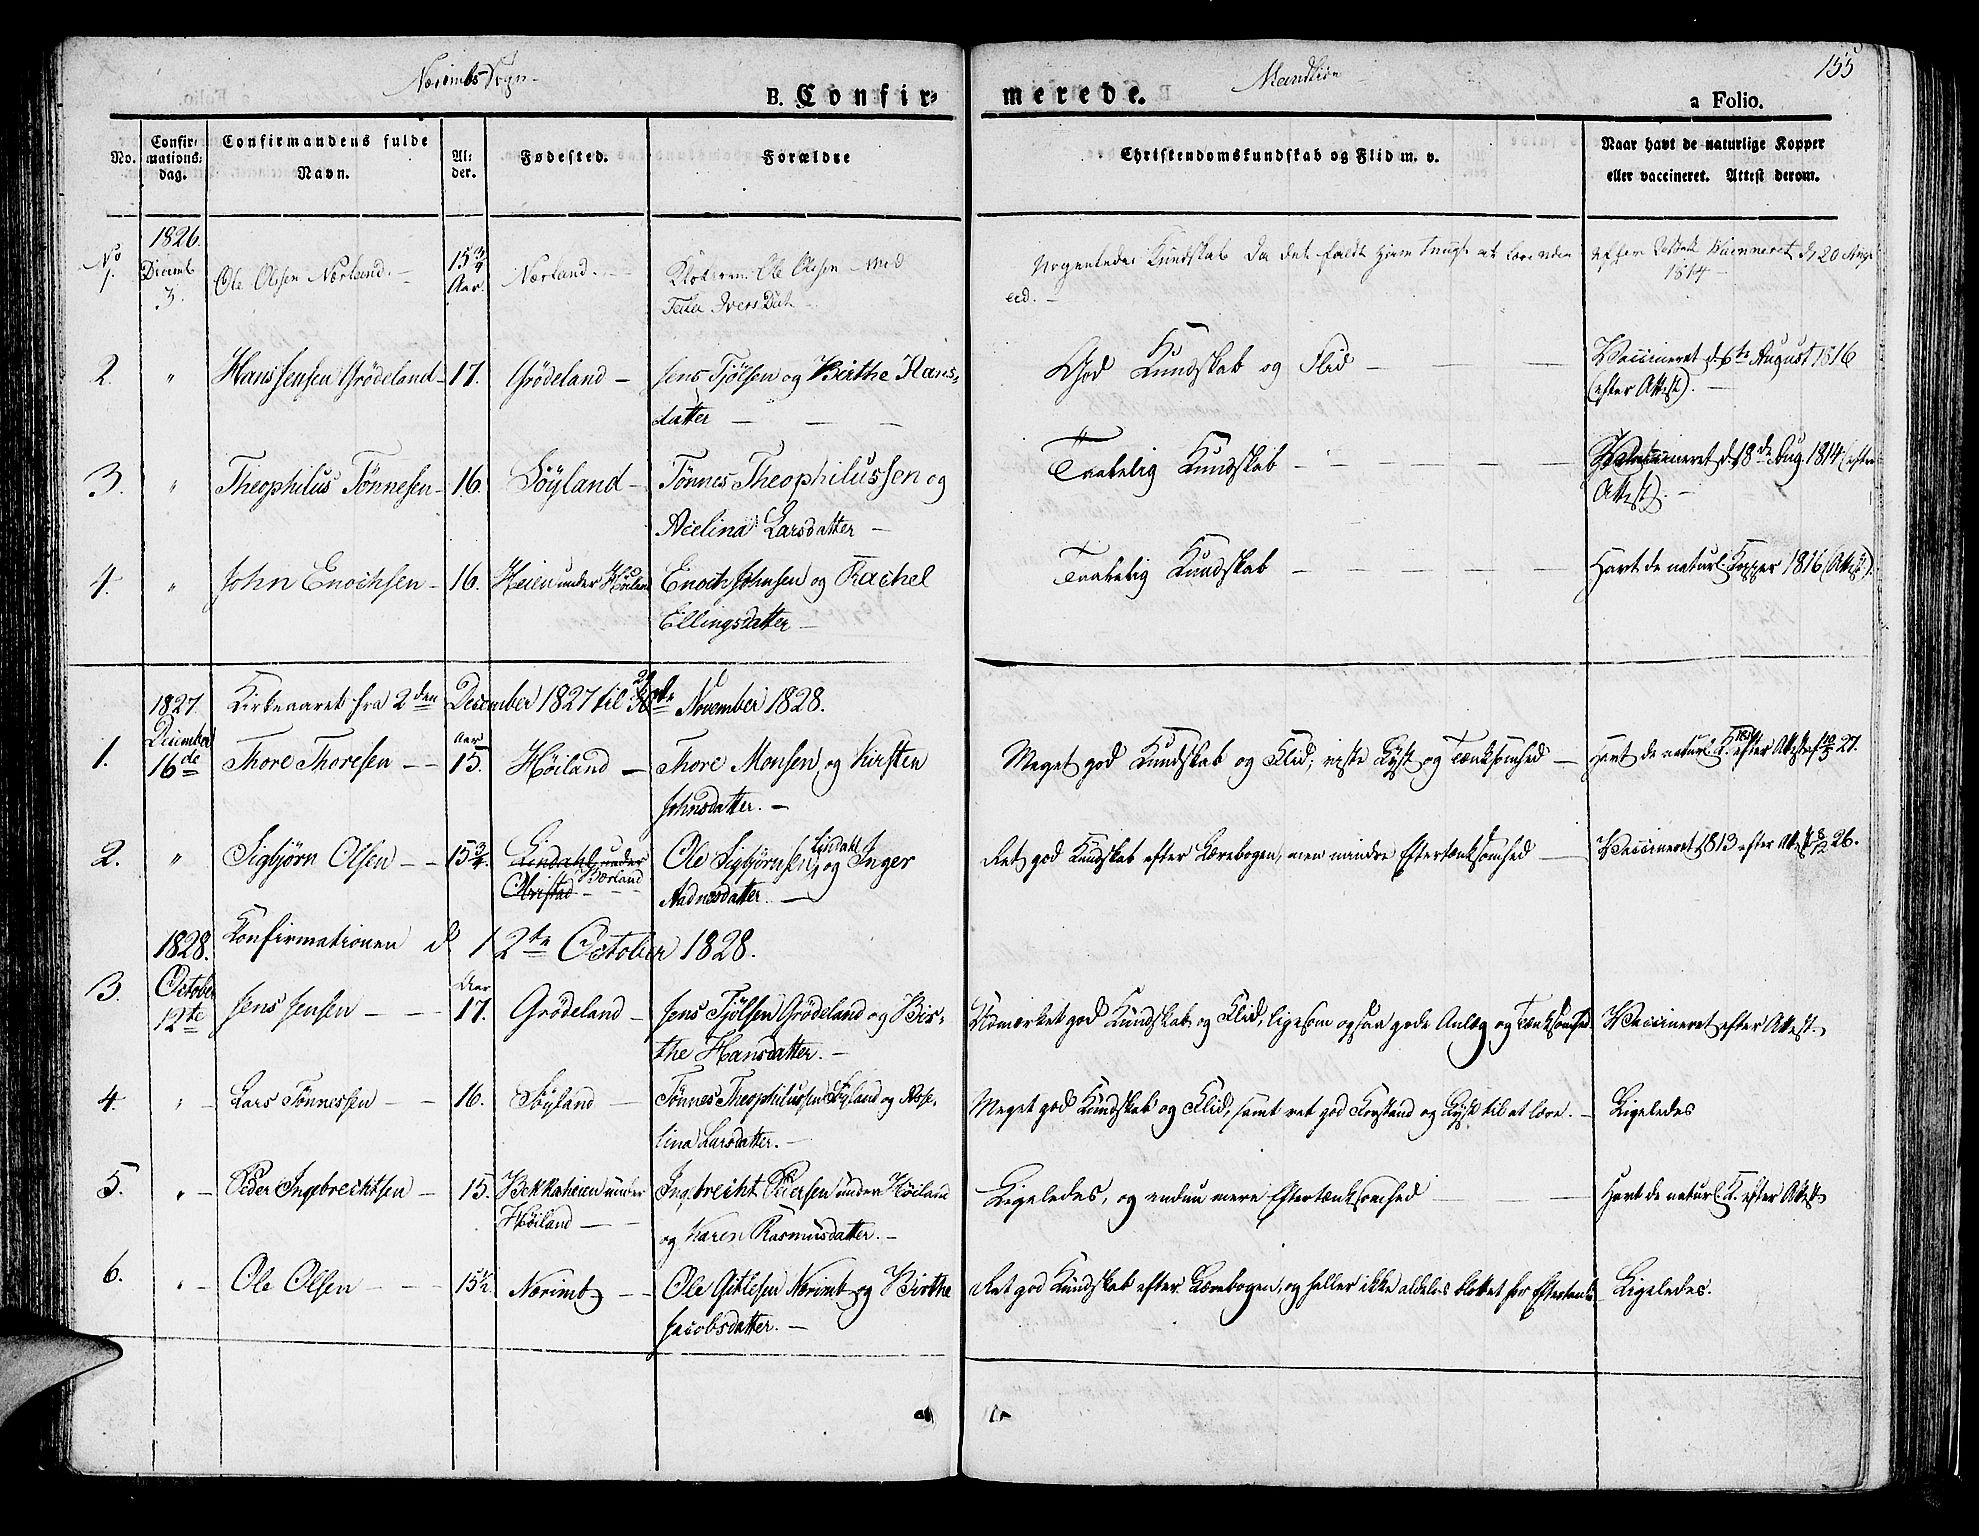 Nærimbs Sogn
Mandkiøn
155
B. Confir=
merede.
a Folio.
No.
Confir=
mations=
dag.
Confirmandens fulde
Navn.
Al=
der.
Fødested.
Forældre
Christendomskundskab og Flid m. v.
Naar havt de naturlige Kopper
eller vaccineret. Attest derom.
1826.
No 1. Decemb 3. Ole Olsen Nærland. 15 3/4 Aar. Nærland. Ole Olssen med
Iversdatr
Kundskab da det faldt ham at lære uden
ad.
efter Attest Vaccineret d. 20 Aug
1814
2. " Hans Jensen Grödeland 17. Grödeland Jens Tjölsen og Birthe Hans-
datter
God Kundskab og Flid
Vaccineret d. 6te August 1816
(efter Attest).
3. " Theophilus Tönnesen 16 Söyland Tönnes Theophilussen og
Acelina Larsdatter
Taalelig Kundskab
Vaccineret d. 18de Aug. 1814 (efter
Attest).
4. " John Enochsen 16. Heien under Höiland Enoch Johnsen og Rachel
Ellingsdatter
Taalelig Kundskab
Havt de naturl. Kopper 1816 (Attest).
1827 Kirkeaaret fra 2den December 1827 til 29de November 1828.
1. December 16de Thore Thoresen Aar 15. Höiland Thore Monsen og Kirsten
Johnsdatter.
Meget god Kundskab og Flid; viste Lyst og Tænksomhed
Havt de naturl. K. efter Attest 27.
2. " Sigbjörn Olsen 15 3/4. Lindahl under
Obristad Bærland
Ole Sigbjörnsen Lindahl og Inger
Aadnesdatter.
Ret god Kundskab efter Lærebogen, men mindre Eftertænksomhed
Vaccineret 1813 efter Attest 8/12 26.
1828. Confirmationen d. 12te October 1828.
3. October 12te Jens Jensen Aar 17. Grödeland Jens Tjölsen Grödeland og Bir-
the Hansdatter.
Udmærket god Kundskab og Flid, ligesom ogsaa gode Anlæg og Tænksomhed
Vaccineret efter Attest
4. " Lars Tönnessen 16. Söyland Tönnes Theophilussen Söyland og Asse-
lina Larsdatter.
Meget god Kundskab og Flid, samt ret god Forstand og Lyst til at lære.
Ligeledes
5. " Peder Ingebrechtsen 15. Bekkaheien under
Höiland
Ingebrecht Pedersen under Höiland
og Karen Rasmusdatter.
Ligeledes, og endnu mere Eftertænksomhed
Havt de naturl. K. efter Attest
6. " Ole Olsen 15 1/2. Nærimb Ole Gitlesen Nærimb og Birthe
Jacobsdatter.
Ret god Kundskab efter Lærebogen, og heller ikke aldeles blottet for Eftertanke
Ligeledes.